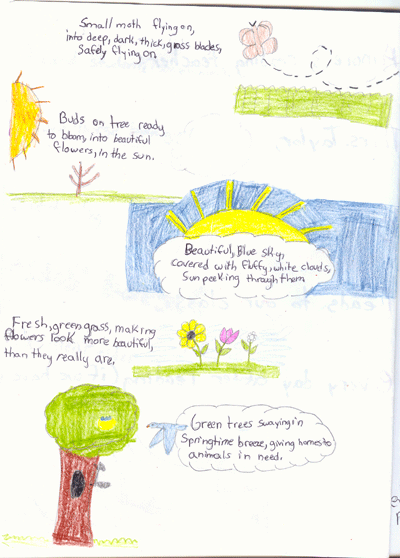 Small moth flying on,
into deep, dark, thick, grass blades,
Safely flying on.
Buds on tree ready
to bloom, into beautiful
flowers, in the sun.
Beautiful, Blue sky,
covered with fluffy, white clouds,
Sun peeking through them.
Fresh, green grass, making
flowers look more beautiful,
than they really are.
Green trees swaying in
Springtime breeze, giving homes to
animals in need.